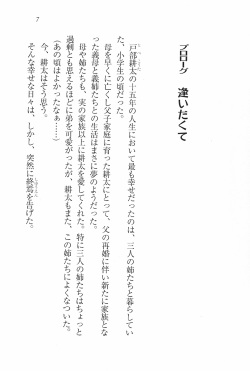 7
プロローグ 逢いたくて
戸部耕太の十五年の人生において最も幸せだったのは、三人の姉たちと暮らしてい
た、小学生の頃だった。
母を早くに亡くし父子家庭に育った耕太にとって、父の再婚に伴い新たに家族とな
った義母と義姉たちとの生活はまさに夢のようだった。
母や姉たちも、実の家族以上に耕太を愛してくれた。特に三人の姉たちはちょっと
過剰とも思えるほどに弟を可愛がったが、耕太もまた、この姉たちによくなついた。
あの頃はよかったなぁ……）
今、耕太はそう思う。
そんな幸せな日々は、しかし、突然に終焉を告げた。